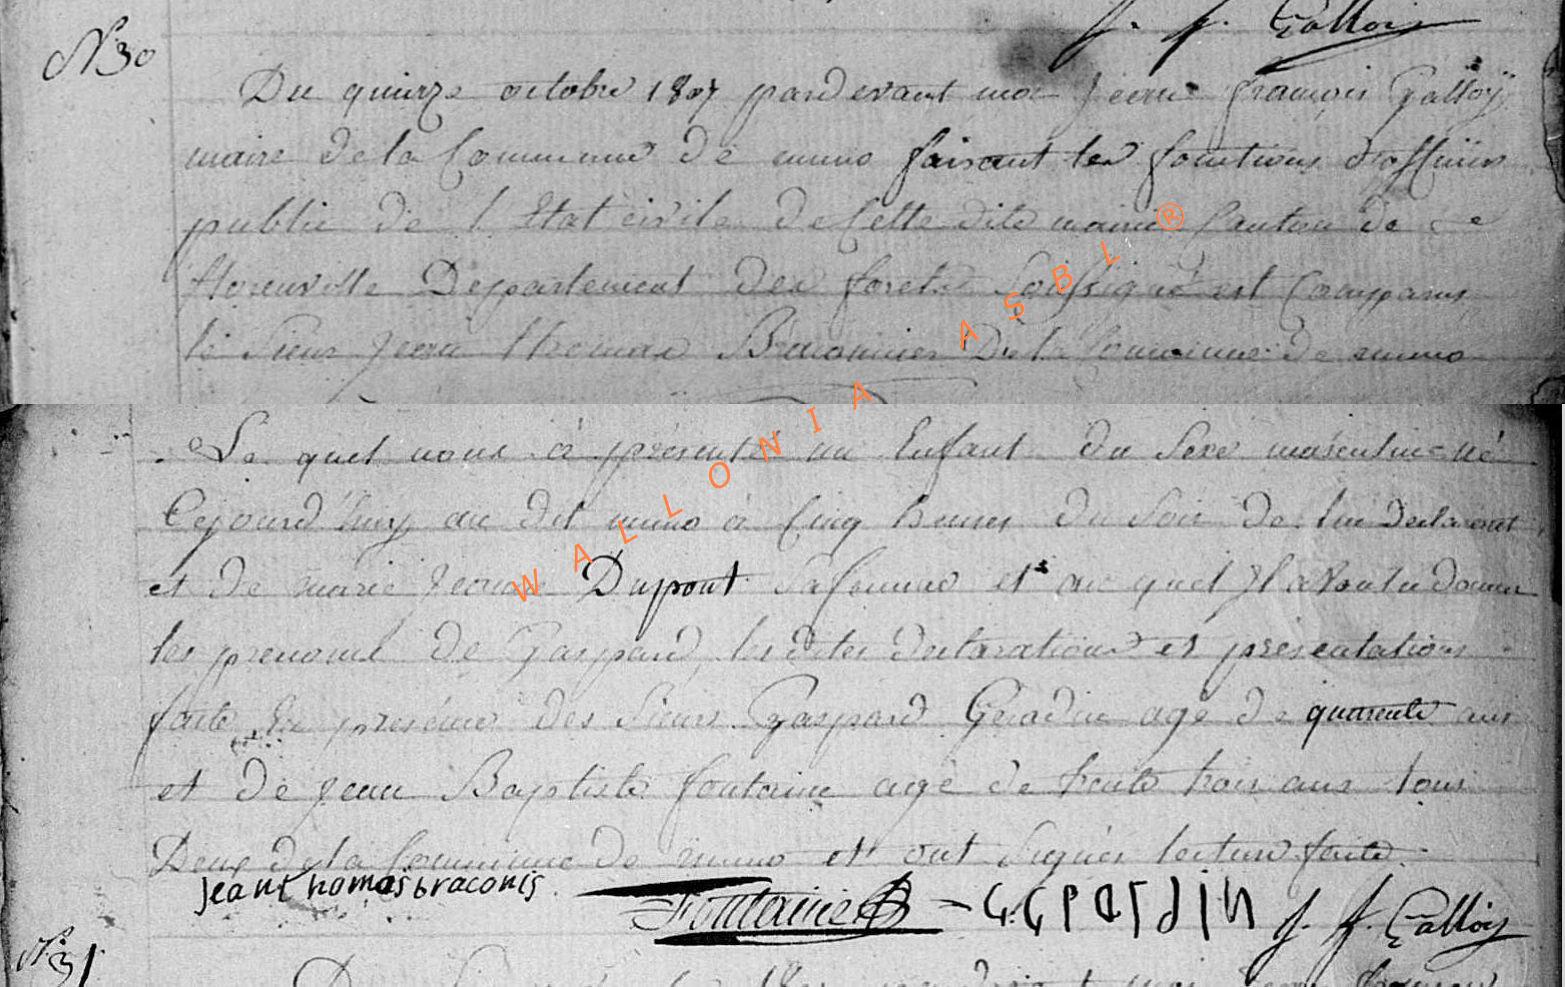 J. f. Gallois
N° 30
Du quinze octobre 1807 pardevant moi Jean françois Galloÿ
maire de la Commune de muno faisant les fonctions d'officier
public de l'Etat civile de Cette dite mairie Canton de
florenville Departement des forets Soussigné est Comparus
le Sieur Jean thomas Braconnier De la Commune de muno
Le quel nous à présenté un Enfant du Sexe masculin né
Cejourd'huy au dit muno à Cinq heures du Soir de lui Declarant
et de marie Jeanne Dupont Sa femme et au quel Il a Voulu donner
les prenoms de Gaspard, les dites declarations et présentations
faite En présence des Sieurs Gaspard Gerardin agé de quarente ans
et de Jean Baptiste fontaine agé de trente trois ans tous
Deux de la Commune de muno et ont Signés lecture faite.
Jean thomas braconis
Fontaine
J. f. Galloÿ
N° 31
WALLONIA ASBL ®